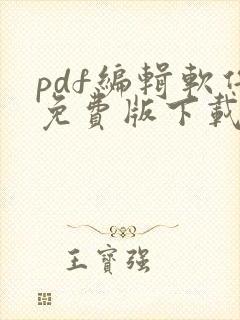 pdf編輯軟件
免費版下載
王寶强